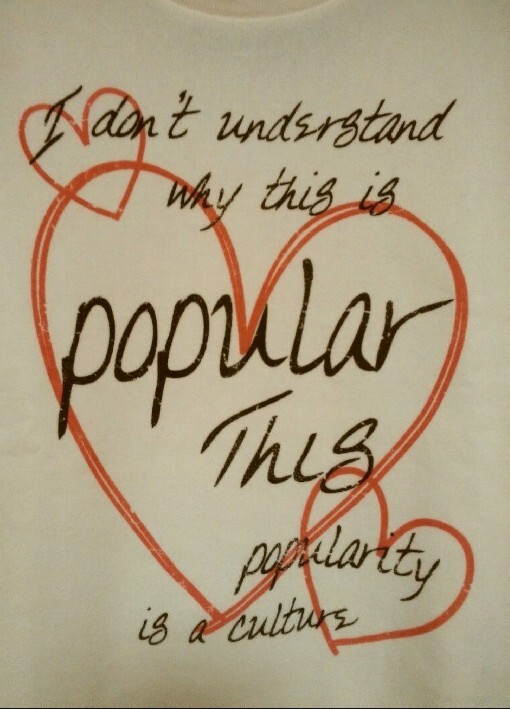 I don't understand
why this is
popular
This
popularity
is a culture